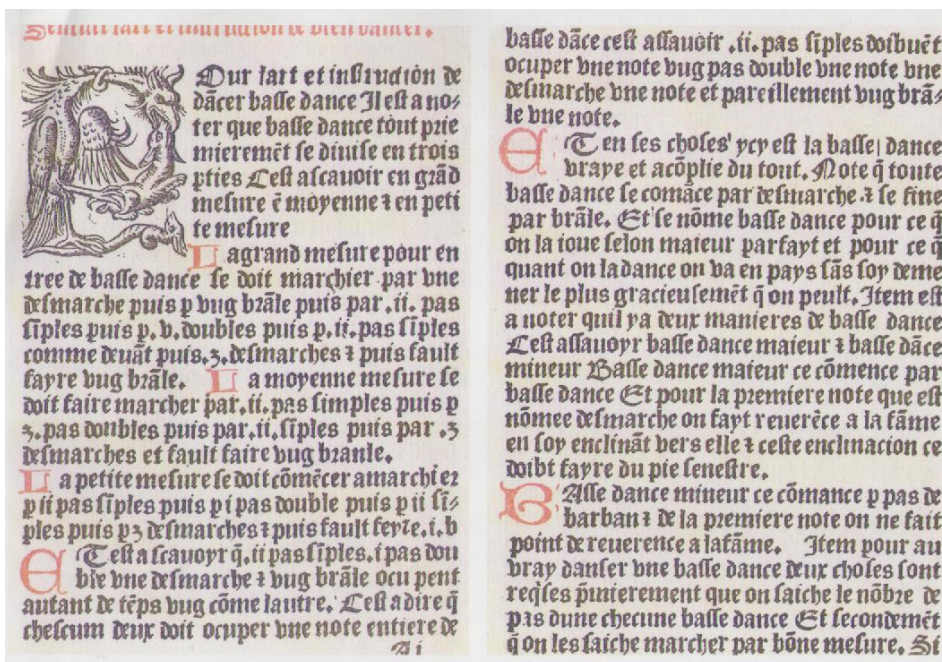 Sensuit lart et instruction de bien dancer.
Our lart et instruction de
dãcer basse dance Il est a no⸗
ter que basse dance tout prie
mieremẽt se diuise en trois
ꝑties Cest ascauoir en grãd
mesure ẽ moyenne ⁊ en peti
te mesure
La grand mesure pour en
tree de basse dance se doit marchier par vne
desmarche puis p vug brãle puis par .ii. pas
sĩples puis p. v. doubles puis p. ii. pas sĩples
comme deuãt puis .3. desmarches ⁊ puis fault
fayre vug brãle. La moyenne mesure se
doit faire marcher par .ii. pas simples puis p
3. pas doubles puis par .ii. sĩples puis par .3
desmarches et fault faire vug branle.
La petite mesure se doit cõmẽcer a marchi er
p ii pas sĩples puis p i pas double puis p ii sĩ⸗
ples puis p 3 desmarches ⁊ puis fault feyre .i. b
ET est a scauoyr q̃ .ii pas sĩples .i pas dou
ble vne desmarche ⁊ vug brãle ocu pent
autant de tẽps vug cõme lautre. Cest a dire q̃
chescum deux doit ocuper vne note entiere de
Ai
basse dãce cest assauoir .ii. pas sĩples doibuẽt
ocuper vne note vug pas double vne note vne
desmarche vne note et pareillement vug brã⸗
le vne note.
ET en ses choses ycy est la basse dance
vraye et acõplie du tout. Note q̃ toute
basse dance se comãce par desmarche .⁊ se fine
par brãle. Et se nõme basse dance pour ce q̃
on la ioue selon maieur parfayt et pour ce q̃
quant on la dance on va en pays sãs soy deme
ner le plus gracieusemẽt q̃ on peult. Item est
a noter quil ya deux manieres de basse dance
Cest assauoyr basse dance maieur ⁊ basse dãce
mineur Basse dance maieur ce cõmence par
basse dance Et pour la premiere note que est
nõmee desmarche on fayt reuerẽce a la fãme
en soy enclinãt vers elle ⁊ ceste enclinacion ce
doibt fayre du pie senestre.
BAsse dance mineur ce cõmance p pas de
barban ⁊ de la premiere note on ne fait
point de reuerence a la fãme. Item pour au
vray danser vne basse dance deux choses sont
reqͥses p̃mierement que on saiche le nõbre de
pas dune checune basse dance Et secondemẽt
q̃ on les saiche marcher par bõne mesure. Si